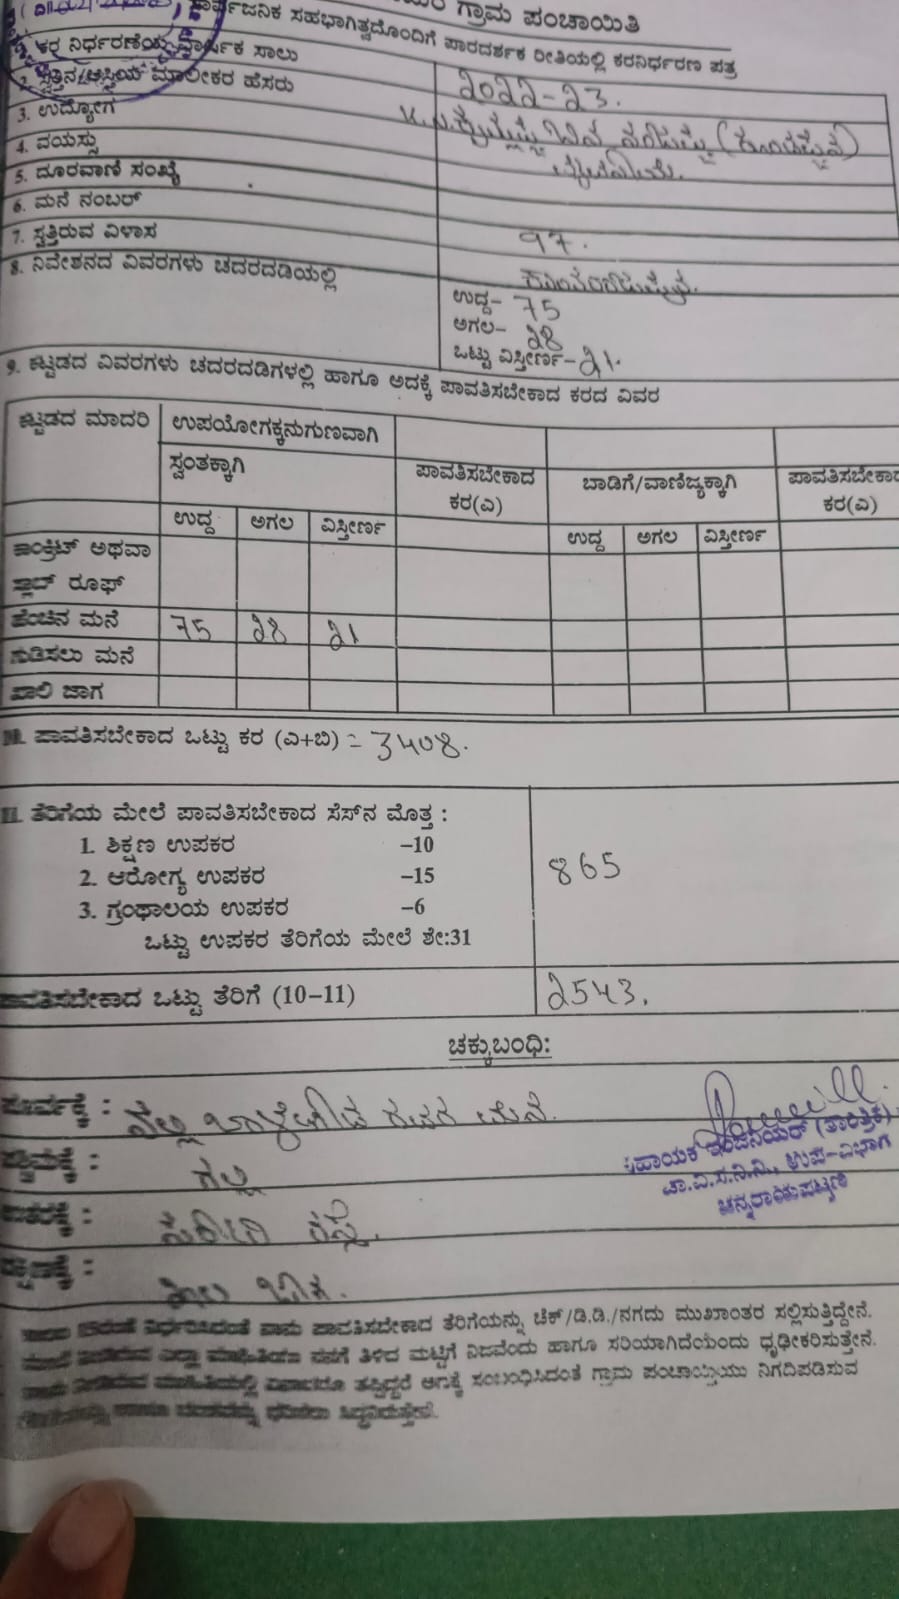 ಗ್ರಾಮ ಪಂಚಾಯಿತಿ
ಸಾರ್ವಜನಿಕ ಸಹಭಾಗಿತ್ವದೊಂದಿಗೆ ಪಾರದರ್ಶಕ ರೀತಿಯಲ್ಲಿ ಕರನಿರ್ಧರಣ ಪತ್ರ
ಕರ ನಿರ್ಧರಣೆಯ ವಾರ್ಷಿಕ ಸಾಲು 2022-23.
2. ಸ್ವತ್ತಿನ/ಆಸ್ತಿಯ ಮಾಲೀಕರ ಹೆಸರು
3. ಉದ್ಯೋಗ
4. ವಯಸ್ಸು
5. ದೂರವಾಣಿ ಸಂಖ್ಯೆ
6. ಮನೆ ನಂಬರ್ 97.
7. ಸ್ವತ್ತಿರುವ ವಿಳಾಸ
8. ನಿವೇಶನದ ವಿವರಗಳು ಚದರದಡಿಯಲ್ಲಿ
ಉದ್ದ- 75
ಅಗಲ- 28
ಒಟ್ಟು ವಿಸ್ತೀರ್ಣ- 21.
9. ಕಟ್ಟಡದ ವಿವರಗಳು ಚದರದಡಿಗಳಲ್ಲಿ ಹಾಗೂ ಅದಕ್ಕೆ ಪಾವತಿಸಬೇಕಾದ ಕರದ ವಿವರ
ಕಟ್ಟಡದ ಮಾದರಿ ಉಪಯೋಗಕ್ಕನುಗುಣವಾಗಿ
ಸ್ವಂತಕ್ಕಾಗಿ ಪಾವತಿಸಬೇಕಾದ ಕರ(ಎ) ಬಾಡಿಗೆ/ವಾಣಿಜ್ಯಕ್ಕಾಗಿ ಪಾವತಿಸಬೇಕಾದ ಕರ(ಎ)
ಉದ್ದ ಅಗಲ ವಿಸ್ತೀರ್ಣ ಉದ್ದ ಅಗಲ ವಿಸ್ತೀರ್ಣ
ಕಾಂಕ್ರಿಟ್ ಅಥವಾ
ಸ್ಲಾಬ್ ರೂಫ್
ಹೆಂಚಿನ ಮನೆ 75 28 21
ಗುಡಿಸಲು ಮನೆ
ಖಾಲಿ ಜಾಗ
10. ಪಾವತಿಸಬೇಕಾದ ಒಟ್ಟು ಕರ (ಎ+ಬಿ) = 3408.
11. ತೆರಿಗೆಯ ಮೇಲೆ ಪಾವತಿಸಬೇಕಾದ ಸೆಸ್‌ನ ಮೊತ್ತ :
1. ಶಿಕ್ಷಣ ಉಪಕರ -10
2. ಆರೋಗ್ಯ ಉಪಕರ -15
865
3. ಗ್ರಂಥಾಲಯ ಉಪಕರ -6
ಒಟ್ಟು ಉಪಕರ ತೆರಿಗೆಯ ಮೇಲೆ ಶೇ:31
ಪಾವತಿಸಬೇಕಾದ ಒಟ್ಟು ತೆರಿಗೆ (10-11) 2543.
ಚಕ್ಕುಬಂಧಿ:
ಪೂರ್ವಕ್ಕೆ : ಮನೆ.
ಪಶ್ಚಿಮಕ್ಕೆ : ಗಲ್ಲಿ
ರಸ್ತೆ.
ಸಹಾಯಕ ಇಂಜಿನಿಯರ್ (ತಾಂತ್ರಿಕ)
ಚಾ.ವಿ.ಸ.ನಿ.ನಿ., ಉಪ-ವಿಭಾಗ
ಚನ್ನರಾಯಪಟ್ಟಣ
ನಾನು ಪಾವತಿಸಬೇಕಾದ ತೆರಿಗೆಯನ್ನು ಚೆಕ್/ಡಿ.ಡಿ./ನಗದು ಮುಖಾಂತರ ಸಲ್ಲಿಸುತ್ತಿದ್ದೇನೆ.
ಎಲ್ಲಾ ಮಾಹಿತಿಯೂ ನನಗೆ ತಿಳಿದ ಮಟ್ಟಿಗೆ ನಿಜವೆಂದು ಹಾಗೂ ಸರಿಯಾಗಿದೆಯೆಂದು ಧೃಢೀಕರಿಸುತ್ತೇನೆ.
ತಪ್ಪಿದ್ದರೆ ಅದಕ್ಕೆ ಸಂಬಂಧಿಸಿದಂತೆ ಗ್ರಾಮ ಪಂಚಾಯ್ತಿಯು ನಿಗದಿಪಡಿಸುವ